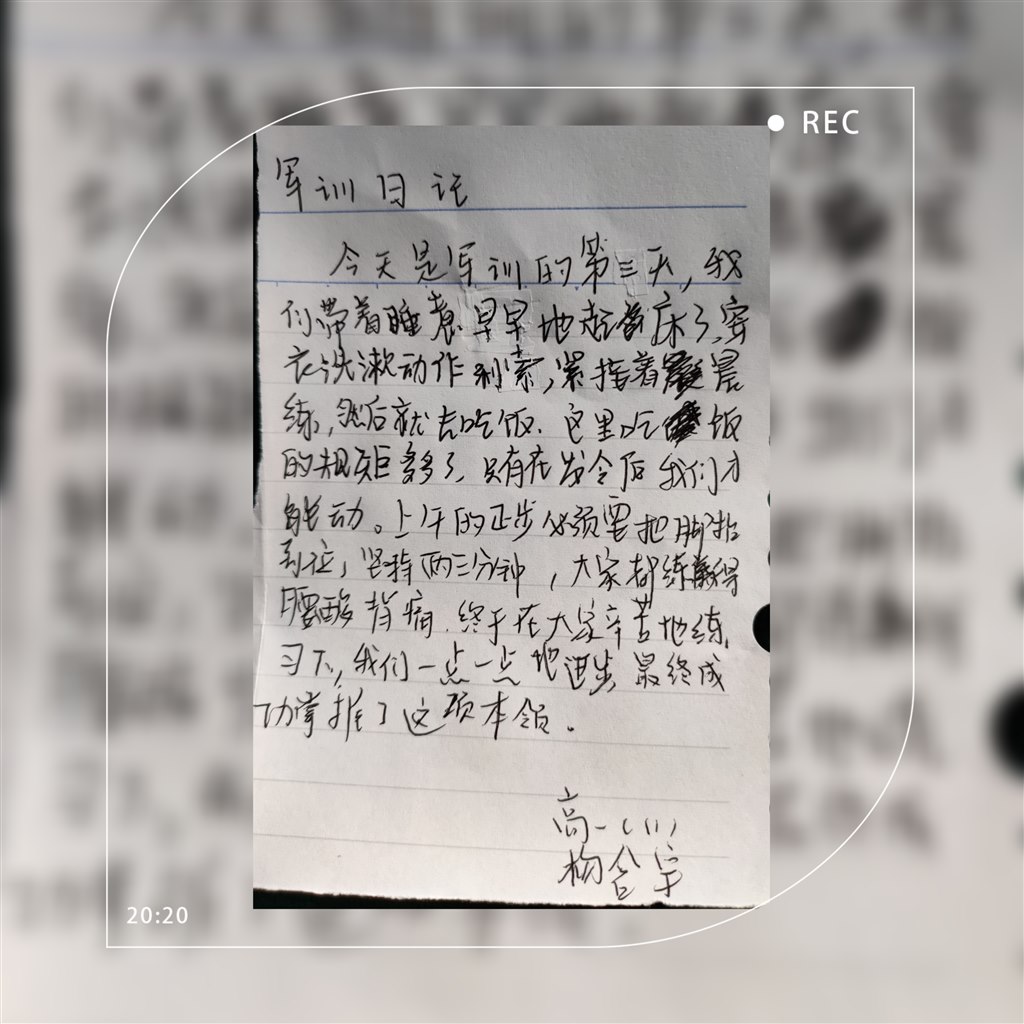 REC
军训日记
今天是军训的第三天,我
们带着睡意早早地起床了,穿
衣洗漱动作利索,紧接着晨
练,然后就去吃饭.这里吃饭
的规矩多了,只有在发令后我们才
能动。上午的正步必须要把脚抬
到位,坚持两三分钟,大家都练得
腰酸背痛.终于在大家辛苦地练
习下,我们一点一点地进步,最终成
功掌握了这项本领。
高一(1)
杨含宇
20:20